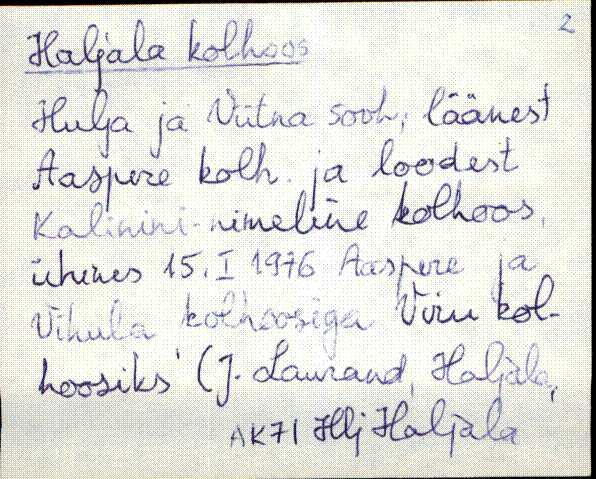 2
Haljala kolhoos
Hulja ja Viitna sovh., läänest
Aaspere kolh. ja loodest
Kalinini-nimeline kolhoos,
ühines 15. I 1976 Aaspere ja
Vihula kolhoosiga Viru kol-
hoosiks (J. Laurand, Haljala,
AK71 Hlj Haljala